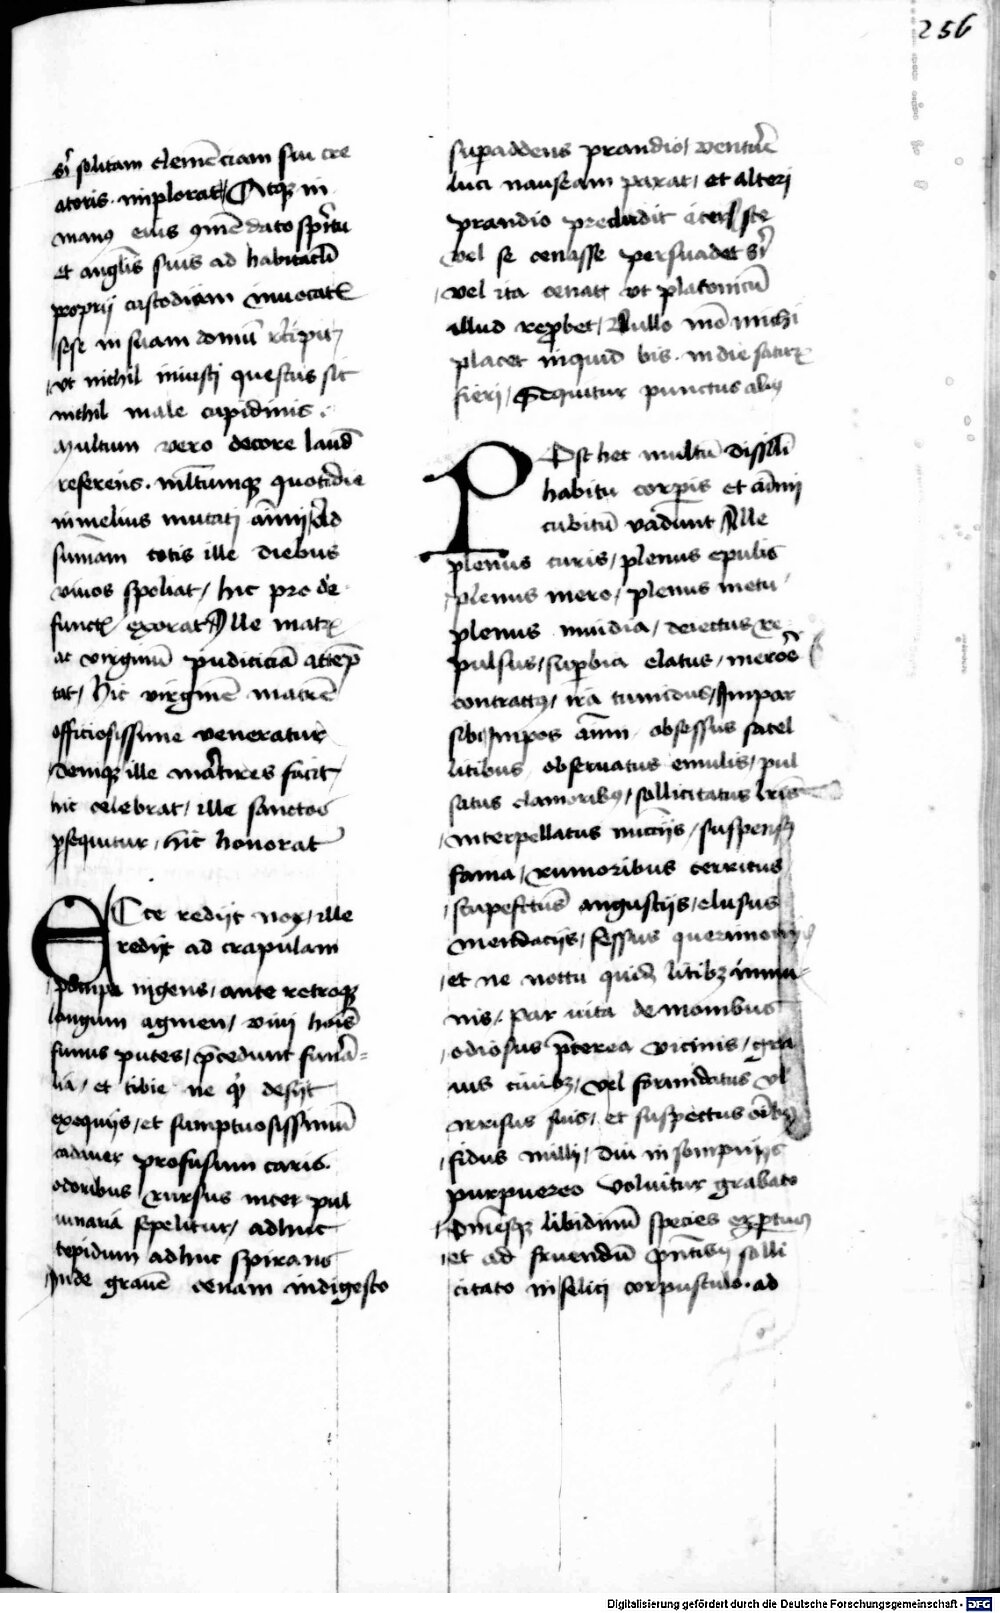 256
sibi solitam clemēciam sui cre
atoris. implorat / Atqꝫ in
manꝰ eius ꝯmēdato spiritu
et angelis suis ad habitacli
proprij custodiam inuocatꝭ
sese in suam domū recipit /
vt nichil iniusti questus sit
nichil male cupidinis.
Multum vero decore laudē
referens. multumqꝫ quotidie
in melius mutati animi / Ad
sūmam totis ille diebus
viuos spoliat / hic pro de
functꝭ exorat / Ille matrꝭ
ac virginū pudiciciā attēp
tat / hic virginē matrē
officiosissime veneratur
Deniqꝫ ille martires facit /
hic celebrat / ille sanctos
ꝑsequitur / hic honorat
ECce redijt nox / ille
redijt ad crapulam
pompa ingens / ante retroqꝫ
longum agmen / viui hoīs
funus putes / p̄cedunt funera
lia / et tibie ne quid desijt
exequijs / et sumptuosissimū
cadauer profusum caris.
odoribus / rursus inter pul
uinaria sepelitur / adhuc
tepidum adhuc spirans
Inde grauē cenam indigesto
supaddens prandio / venture
luci nauseam parat / et alteri
prandio precludit iter / Iste
vel se cenasse persuadet sibi
vel ita cenat / vt platonicū
illud reprobet / Nullo mō michi
placet inquid bis. in die saturꝭ
fieri / Sequitur punctus aliꝰ
POst hec multū dissili
habitu corꝑis et animi
cubitū vadunt / Ille
plenus curis / plenus epulis
plenus mero / plenus metu /
plenus inuidia / deiectus re
pulsus / superbia elatus / merore
contractꝰ / ira tumidus / Impar
sibi / Impos animi obsessus satel
litibus obseruatus emulis / pul
satus clamoribꝰ / sollicitatus lr̄is
interpellatus nuncijs / suspensꝰ
fama / rumoribus territus
stupefctus angustijs / elusus
mendacijs / fessus querimonijs
et ne noctu quidē litibꝫ immu
nis / par vita demonibus
odiosus p̄terea vicinis / gra
uis ciuibꝫ / vel formidatus vl
irrisus suis / et suspectus oībꝰ
fidus nulli / diu insompnijs
purpureo voluitur grabato
omesqꝫ libidinū species expertus
et ad fruendū solli
citato infelici corpusculo. ad
Digitalisierung gefördert durch die Deutsche Forschungsgemeinschaft - DFG